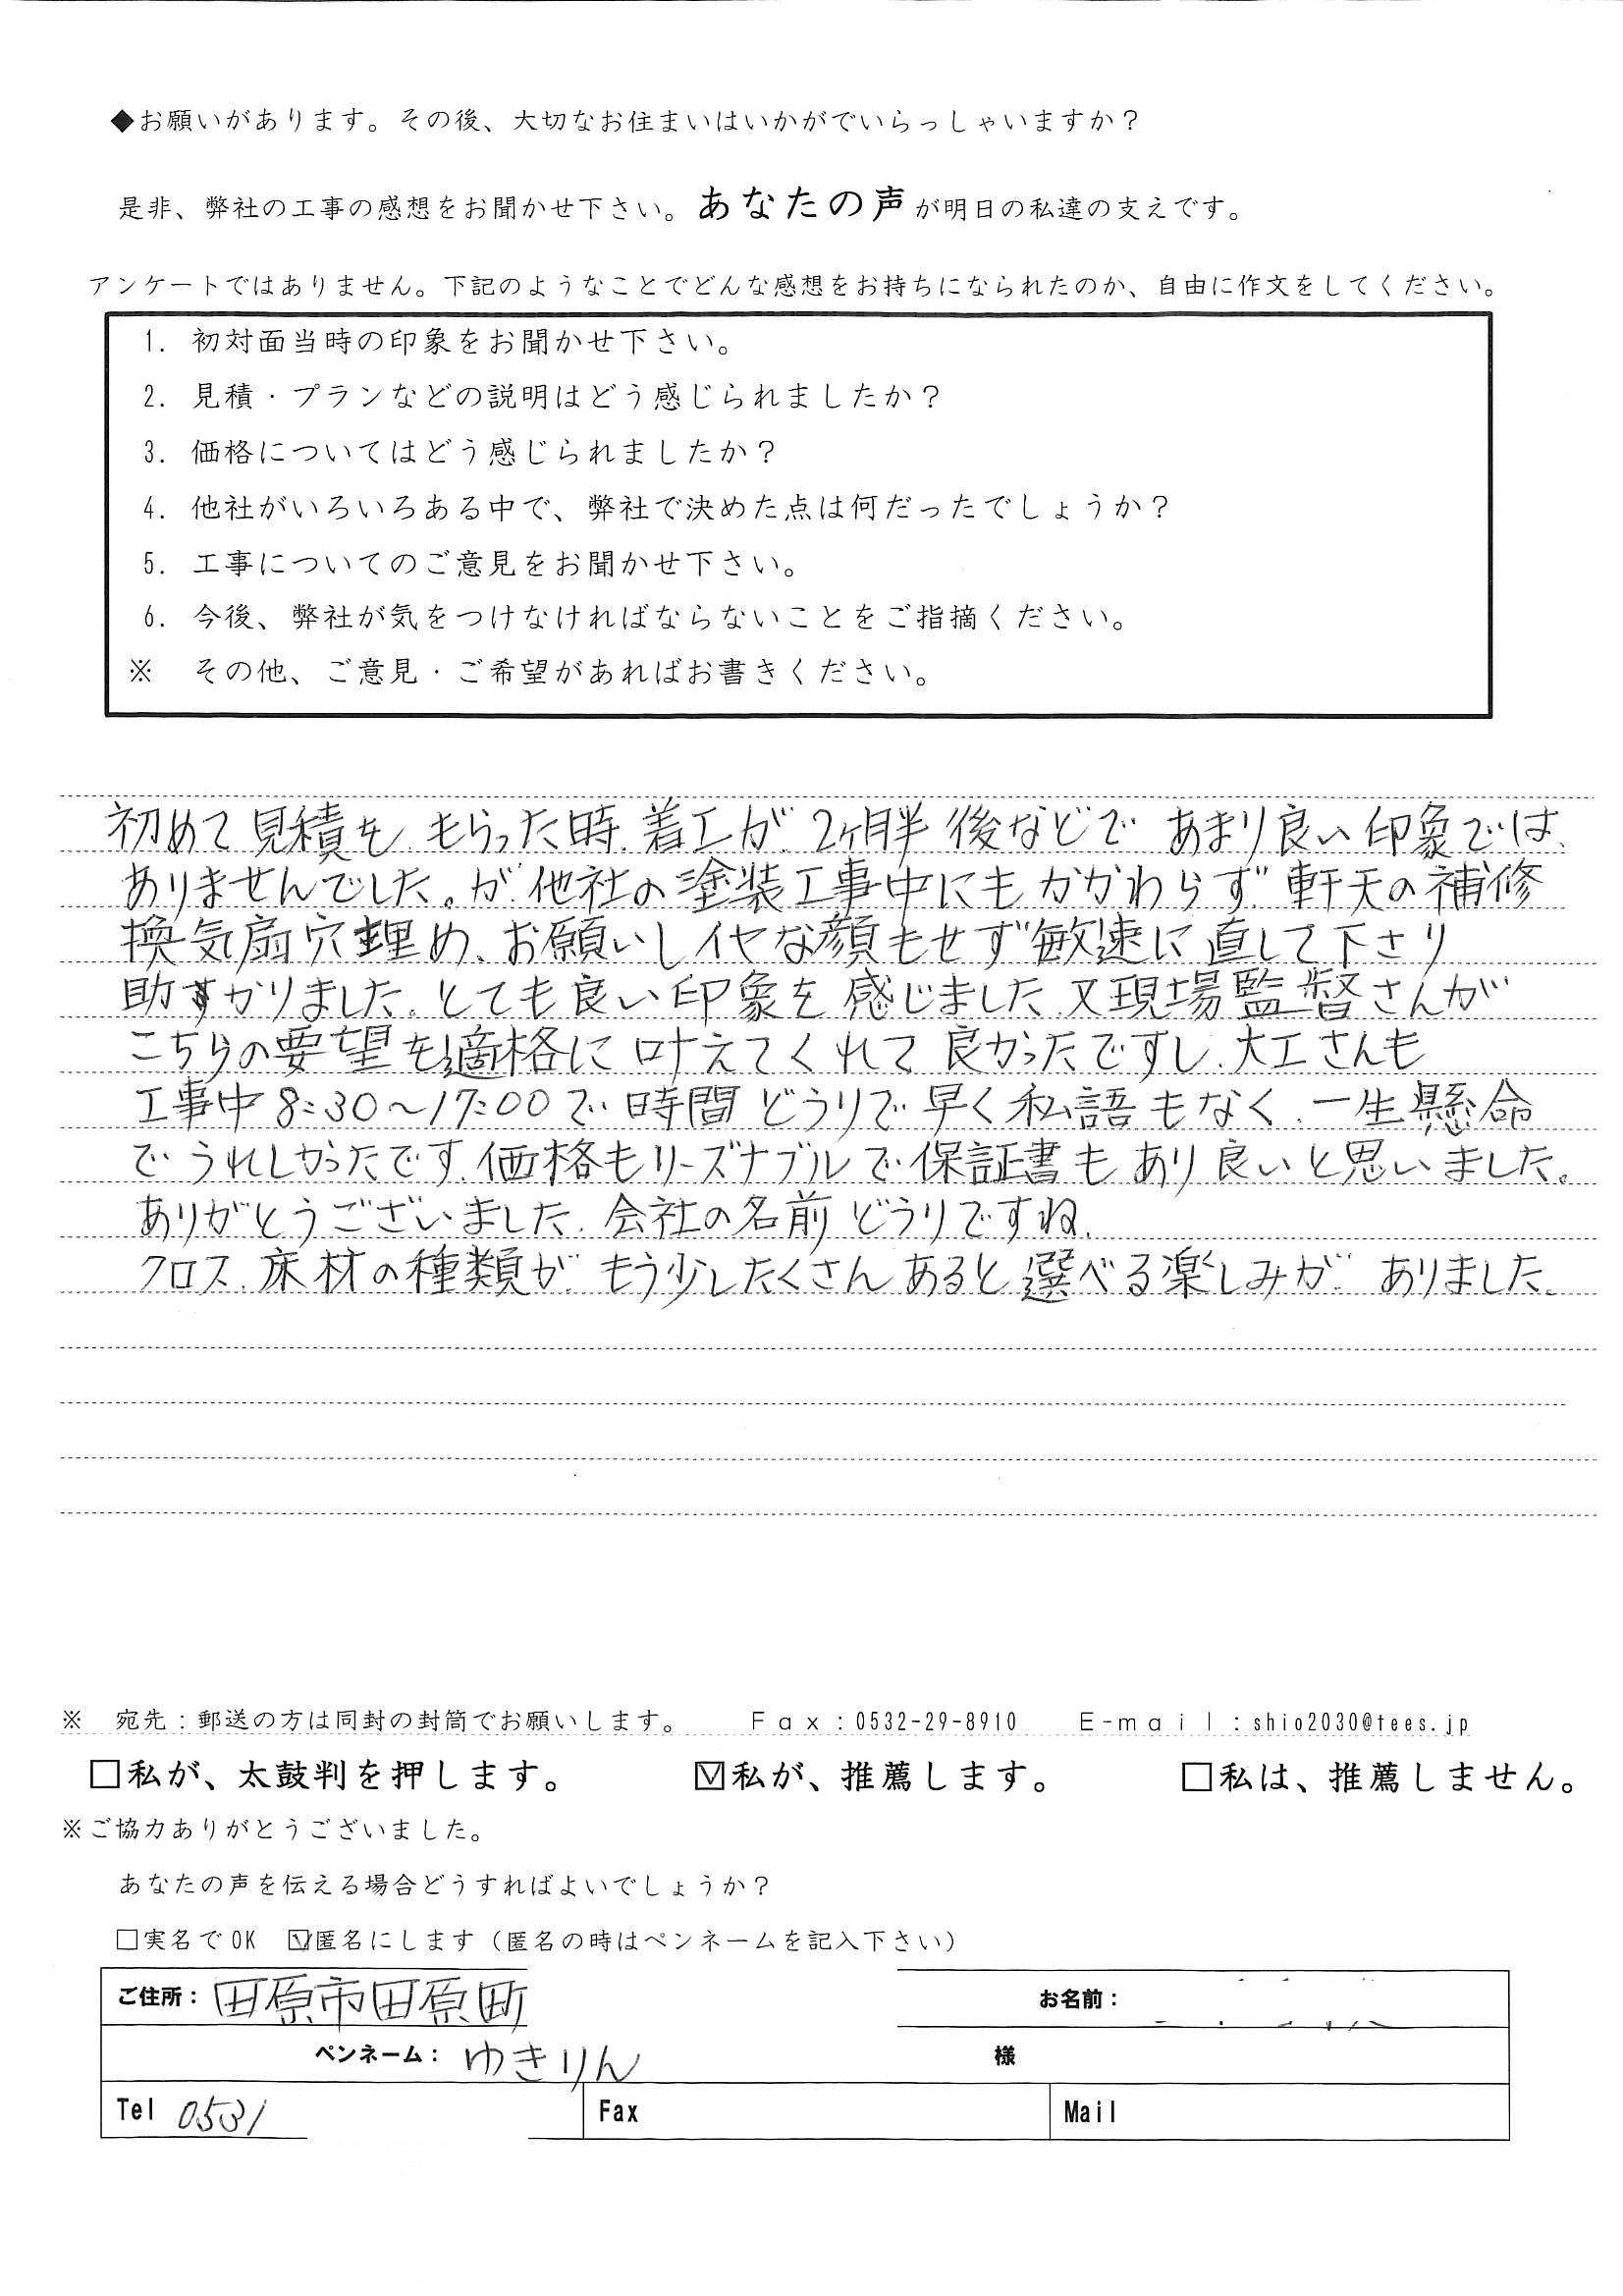 ◆お願いがあります。その後、大切なお住まいはいかがでいらっしゃいますか？
是非、弊社の工事の感想をお聞かせ下さい。あなたの声が明日の私達の支えです。
アンケートではありません。下記のようなことでどんな感想をお持ちになられたのか、自由に作文をしてください。
1. 初対面当時の印象をお聞かせ下さい。
2. 見積・プランなどの説明はどう感じられましたか？
3. 価格についてはどう感じられましたか？
4. 他社がいろいろある中で、弊社で決めた点は何だったでしょうか？
5. 工事についてのご意見をお聞かせ下さい。
6. 今後、弊社が気をつけなければならないことをご指摘ください。
※ その他、ご意見・ご希望があればお書きください。
初めて見積を、もらった時、着工が、2ヶ月半後などで あまり良い印象では、
ありませんでした。が、他社の塗装工事中にもかかわらず、軒天の補修
換気扇穴埋め、お願いしイヤな顔もせず敏速に直して下さり
助すかりました。とても良い印象を感じました、又現場監督さんが
こちらの要望を適格に叶えてくれて良かったですし、大工さんも
工事中8:30～17:00で時間どうりで早く私語もなく、一生懸命
でうれしかったです、価格もリーズナブルで保証書もあり良いと思いました。
ありがとうございました、会社の名前どうりですね、
クロス、床材の種類が、もう少したくさんあると選べる楽しみが、ありました。
※ 宛先：郵送の方は同封の封筒でお願いします。 Fax：0532-29-8910 E-mail：shio2030@tees.jp
□私が、太鼓判を押します。 ☑私が、推薦します。 □私は、推薦しません。
※ご協力ありがとうございました。
あなたの声を伝える場合どうすればよいでしょうか？
□実名でOK ☑匿名にします（匿名の時はペンネームを記入下さい）
ご住所： 田原市田原町 お名前：
ペンネーム： ゆきりん 様
Tel 0531 Fax Mail